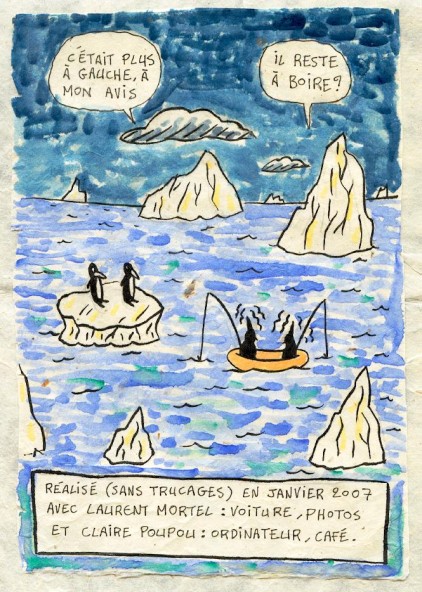 C'ÉTAIT PLUS
À GAUCHE, À
MON AVIS
IL RESTE
À BOIRE?
RÉALISÉ (SANS TRUCAGES) EN JANVIER 2007
AVEC LAURENT MORTEL : VOITURE, PHOTOS
ET CLAIRE POUPOU : ORDINATEUR, CAFÉ.